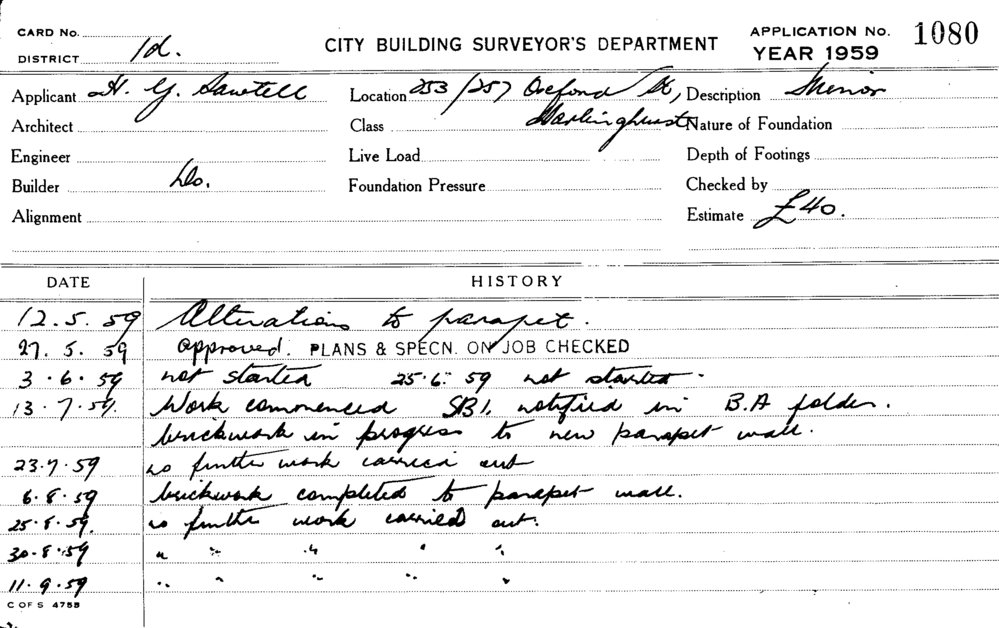 CARD No.
DISTRICT 1d.
CITY BUILDING SURVEYOR'S DEPARTMENT
APPLICATION No. 1080
YEAR 1959
Applicant H. G. Sawtell Location 253/257 Oxford St, Description Minor
Architect Class Darlinghurst Nature of Foundation
Engineer Live Load Depth of Footings
Builder Do. Foundation Pressure Checked by
Alignment Estimate £40.
DATE HISTORY
12.5.59 Alterations to parapet.
27.5.59 Approved. PLANS & SPECN. ON JOB CHECKED
3.6.59 not started 25.6.59 not started.
13.7.59. Work commenced SB1. notified in B.A folder.
brickwork in progress to new parapet wall.
23.7.59 no further work carried out
6.8.59 brickwork completed to parapet wall.
25.8.59. no further work carried out.
30.8.59 " " " " "
11.9.59 " " " " "
C OF S 4755